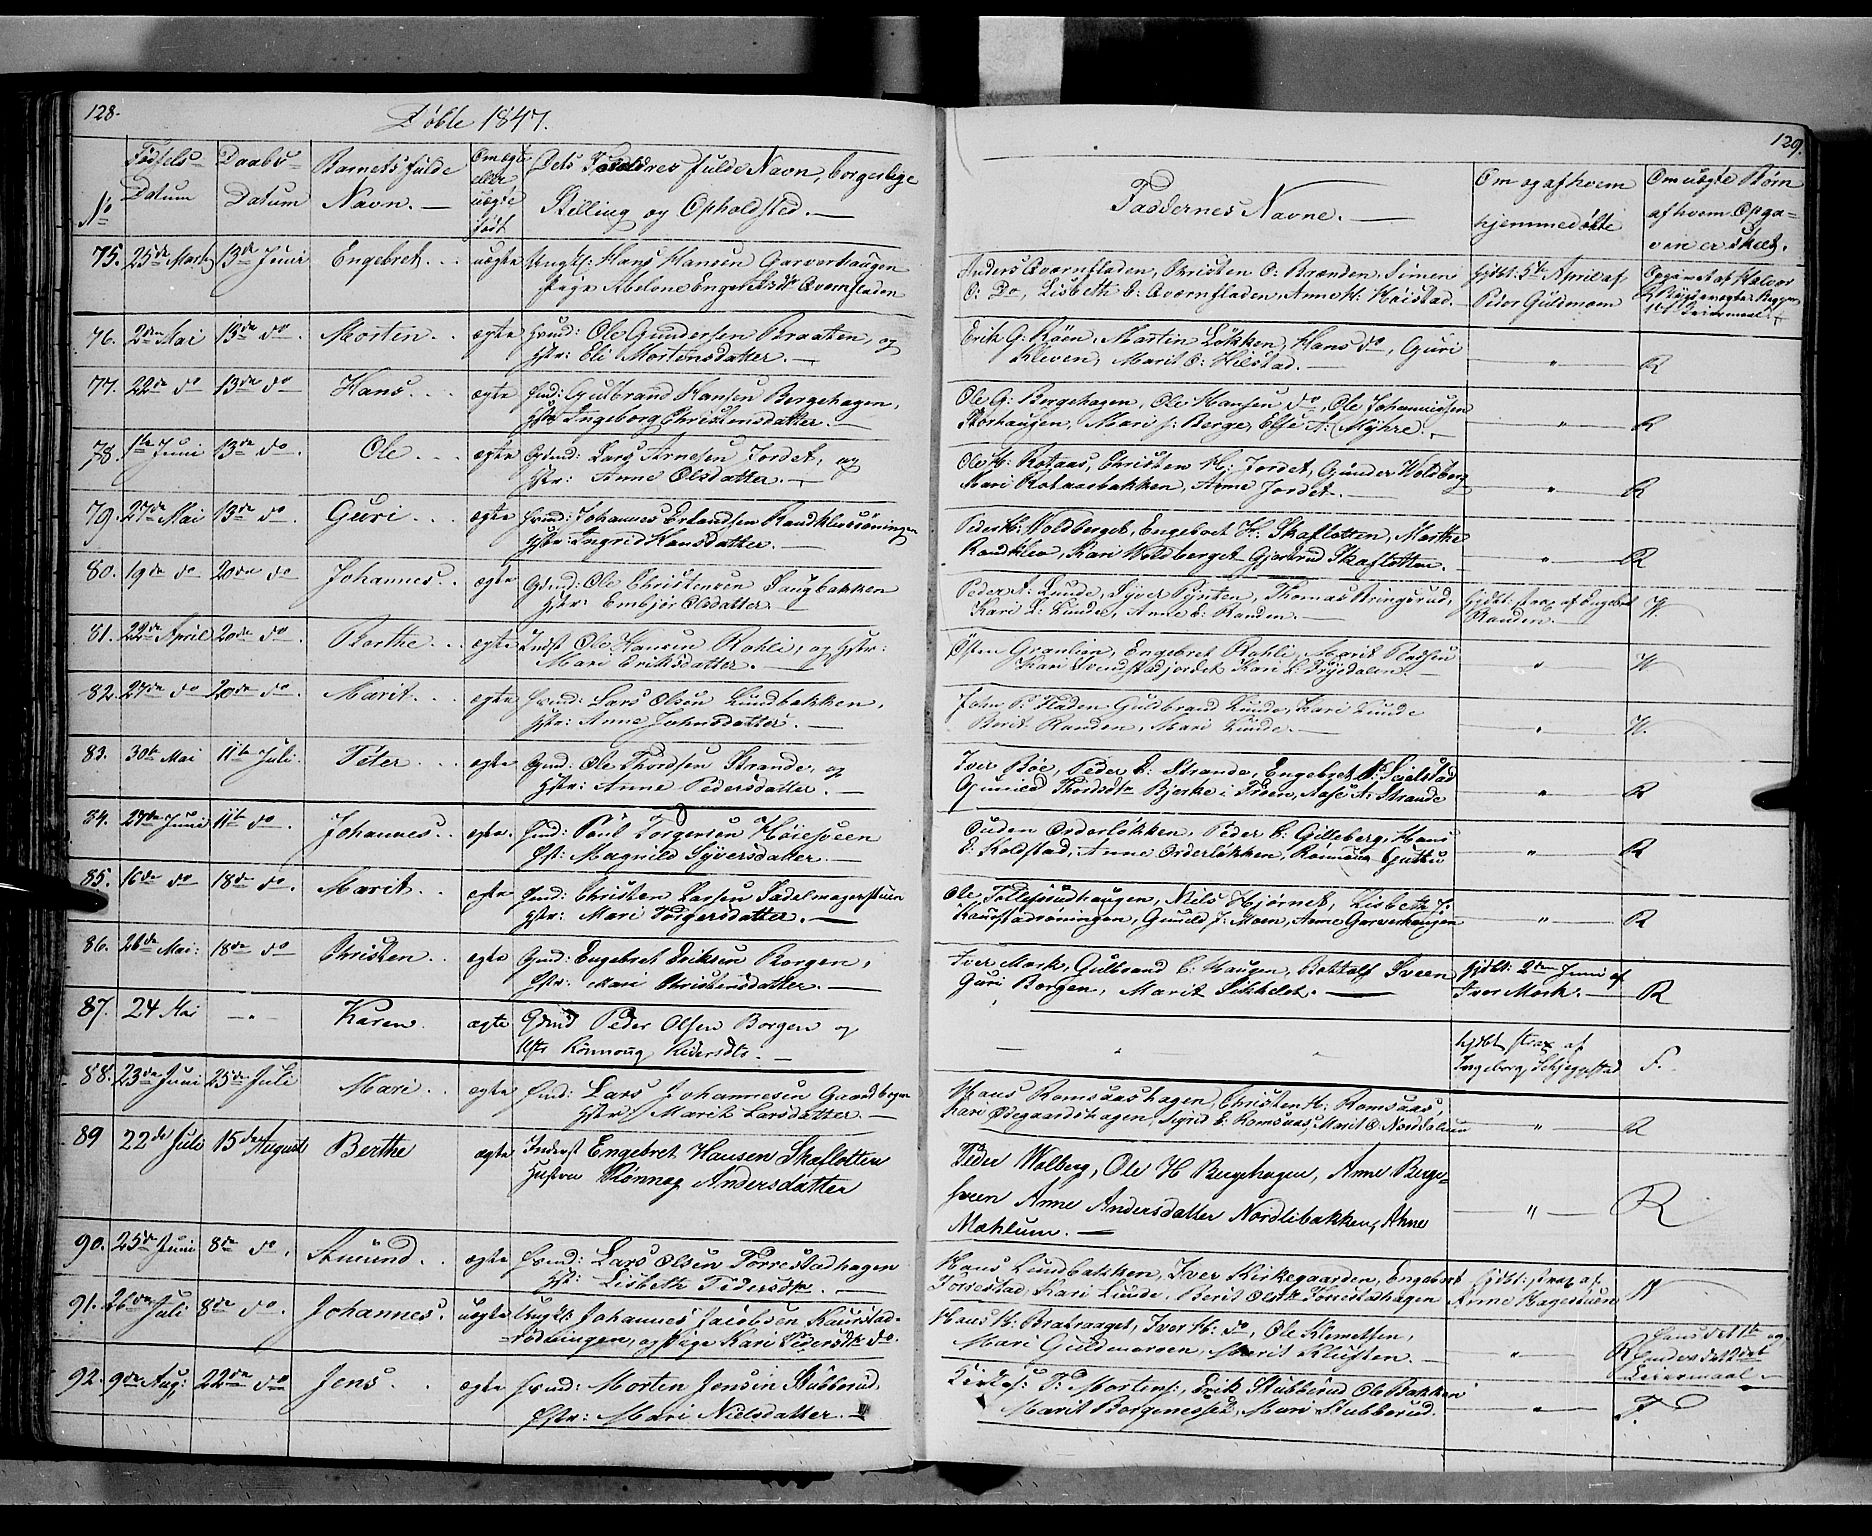 128.
Døbte 1847.
No
Fødsels-
Datum
Daabs-
Datum
Barnets fulde
Navn. —
Om ægte
eller
uægte
født
Dets Forældres fulde Navn, borgerlige
Stilling og Opholdsted. —
75. 25de Marts 13de Juni Engebret. . . uægte Ungkl: Hans Hansen Garverhaugen
Pige Abelone Engebretsdtr Qvernfladen
76. 2den Mai 13de do. Morten. . ægte Gmd: Ole Gundersen Braaten, og
Hstr: Eli Mortensdatter. —
77. 22de do 13de do Hans. . . ægte Gmd: Gulbrand Hansen Bergehagen,
Hstr Ingeborg Christensdatter. —
78. 1ste Juni 13de do. Ole . . . ægte Gdmd: Lars Arnesen Jordet, og
Hstr: Anne Olsdatter. —
79. 27de Mai 13de do. Guri . . . ægte Gmd: Johannes Erlandsen Randklevrøningen
Hstr: Ingrid Hansdatter. —
80. 19de do 20de do Johannes. . ægte Gdmd: Ole Christensen Haugbakken
Hstr: Embjør Olsdatter —
81. 22de April 20de do. Berthe. . ægte Indst Ole Hansen Rohli, og Hstr:
Mari Eriksdatter. —
82. 27de do 20de do. Marit. . ægte Gmd: Lars Olsen Lundbakken,
Hstr: Anne Johnsdatter. —
83. 30te Mai 11te Juli. Peter . . . ægte Gmd: Ole Thordsen Strande, og
Hstr: Anne Pedersdatter. —
84. 27de Juni 11te do. Johannes. . ægte. Gmd: Poul Torgersen Høiesveen
Hst: Magnild Syversdatter. —
85. 16de do 18de do. Marit. . ægte Gmd: Christen Larsen Sadelmagerstuen
Hstr: Mari Torgersdatter. —
86. 26de Mai: 18de do Christen. . ægte Gmd: Engebret Eriksen Borgen,
Hstr: Mari Christensdatter. —
87. 24 Mai —"— Karen. ægte Gdmd Peder Olsen Borgen og
Hstr Rønnoug Pedersdtr. —
88. 23de Juni 25de Juli Mari . ægte Gmd: Lars Johannesen Gaardbogen
Hstr: Marit Larsdatter. —
89 22de Juli 15de August Berthe ægte Inderst Engebret Hansen Skaflotten
Hustru Rønnog Andersdatter
90. 25de Juni 8de do. Amund. . ægte Gmd: Lars Olsen Torrestadhagen
Hst: Lisbeth Pedersdtr. —
91. 26de Juli 8de do. Johannes. uægte Ungkl: Johannes Jacobsen Kaurstad-
rødningen, og Pige Kari Pedersdtr do.
92. 9de Aug: 22de do Jens. . . ægte Gmd: Morten Jensen Stubberud
Hstr: Mari Nielsdatter. —
129.
Faddernes Navne. —
Om og af hvem
hjemmedøbte
Om uægte Børn
af hvem Opga-
ven er skeet.
Anders Qvernfladen, Christen O: Brænden, Simen
O: Do, Lisbeth E: Qvernfladen, Anne H: Kristad. Hjdbt: 5te April af
Peder Guldmoen
Erik G. Røen, Martin Løkken, Hans do, Guri
Kleven, Marit O: Hilstad. — " — R
Ole G: Bergehagen, Ole Hansen do, Ole Johannessen
Storhaugen, Mari J: Berge, Else A: Myhre. — " — R
Ole H: Rotaas, Christen H: Jordet, Gunder Woldberg
Mari Rotaasbakken, Anne Jordet. — " — R
Peder H: Woldberget, Engebret H: Skaflotten, Marthe
Randklev, Kari Woldberget Gjertrud Skaflotten. — " — R
Peder A: Lunde, Syver Pynten, Thomas Ringsrud,
Kari L: Lunde, Anne E: Randen. — Hjdbt: strax af Engebret
Randen. — N.
Østen Granlien, Engebret Rohli, Marit Rohli
Kari Svendstadjordet Kari L: Frydalen. — " N
John P: Fladen Guldbrand Lunde, Kari Lunde
Berit Randen, Mari Lunde. — " N.
Iver Bøe, Peder E: Strande, Engebret P: Svelstad
Gunild Thordsdtr Bjerke i Froen, Aase A: Strande " R
Ouden Orderløkken, Peder E: Gilleberg, Hans
E: Koldstad, Anne Orderløkken, Rønnoug Guttu. " R
Ole Tollefsrudhaugen, Niels Hjørnet, Lisbeth J:
Kaurstadrøningen, Gunild J: Moen, Anne Garverhaugen " R
Iver Mork, Gulbrand E: Haugen, Botholf Sveen
Guri Borgen, Marit Sikkelet. — Hjdbt: 2den Juni af
Iver Mork. — R
— " " Hjdbt strax af
Ingeborg Skjeggestad F.
Hans Romsaashagen, Christen H: Romsaas,
Kari Ødegaardshagen, Sigrid E: Romsaas, Marit O Norddalen — " — R
Peder Wolberg, Ole H Bergehagen, Anne Berge-
sveen Anne Andersdatter Nordlibakken, Anne
Mæhlum. — — " — R
Hans Lundbakken, Iver Kirkegaarden, Engebret
Torrestad, Kari Lunde, Berit Olsdtr Torrestadhagen Hjdbt: strax af
Anne Hagestuen N
Hans H: Bratvaaget, Iver H: do, Ole Klemetsen,
Mari Guldmoroen, Marit Kluften. — — " — R
P: Mortens:, Erik Stubberud Ole Bakken
Marit Borgenesset, Mari Stubberud. — " — F.